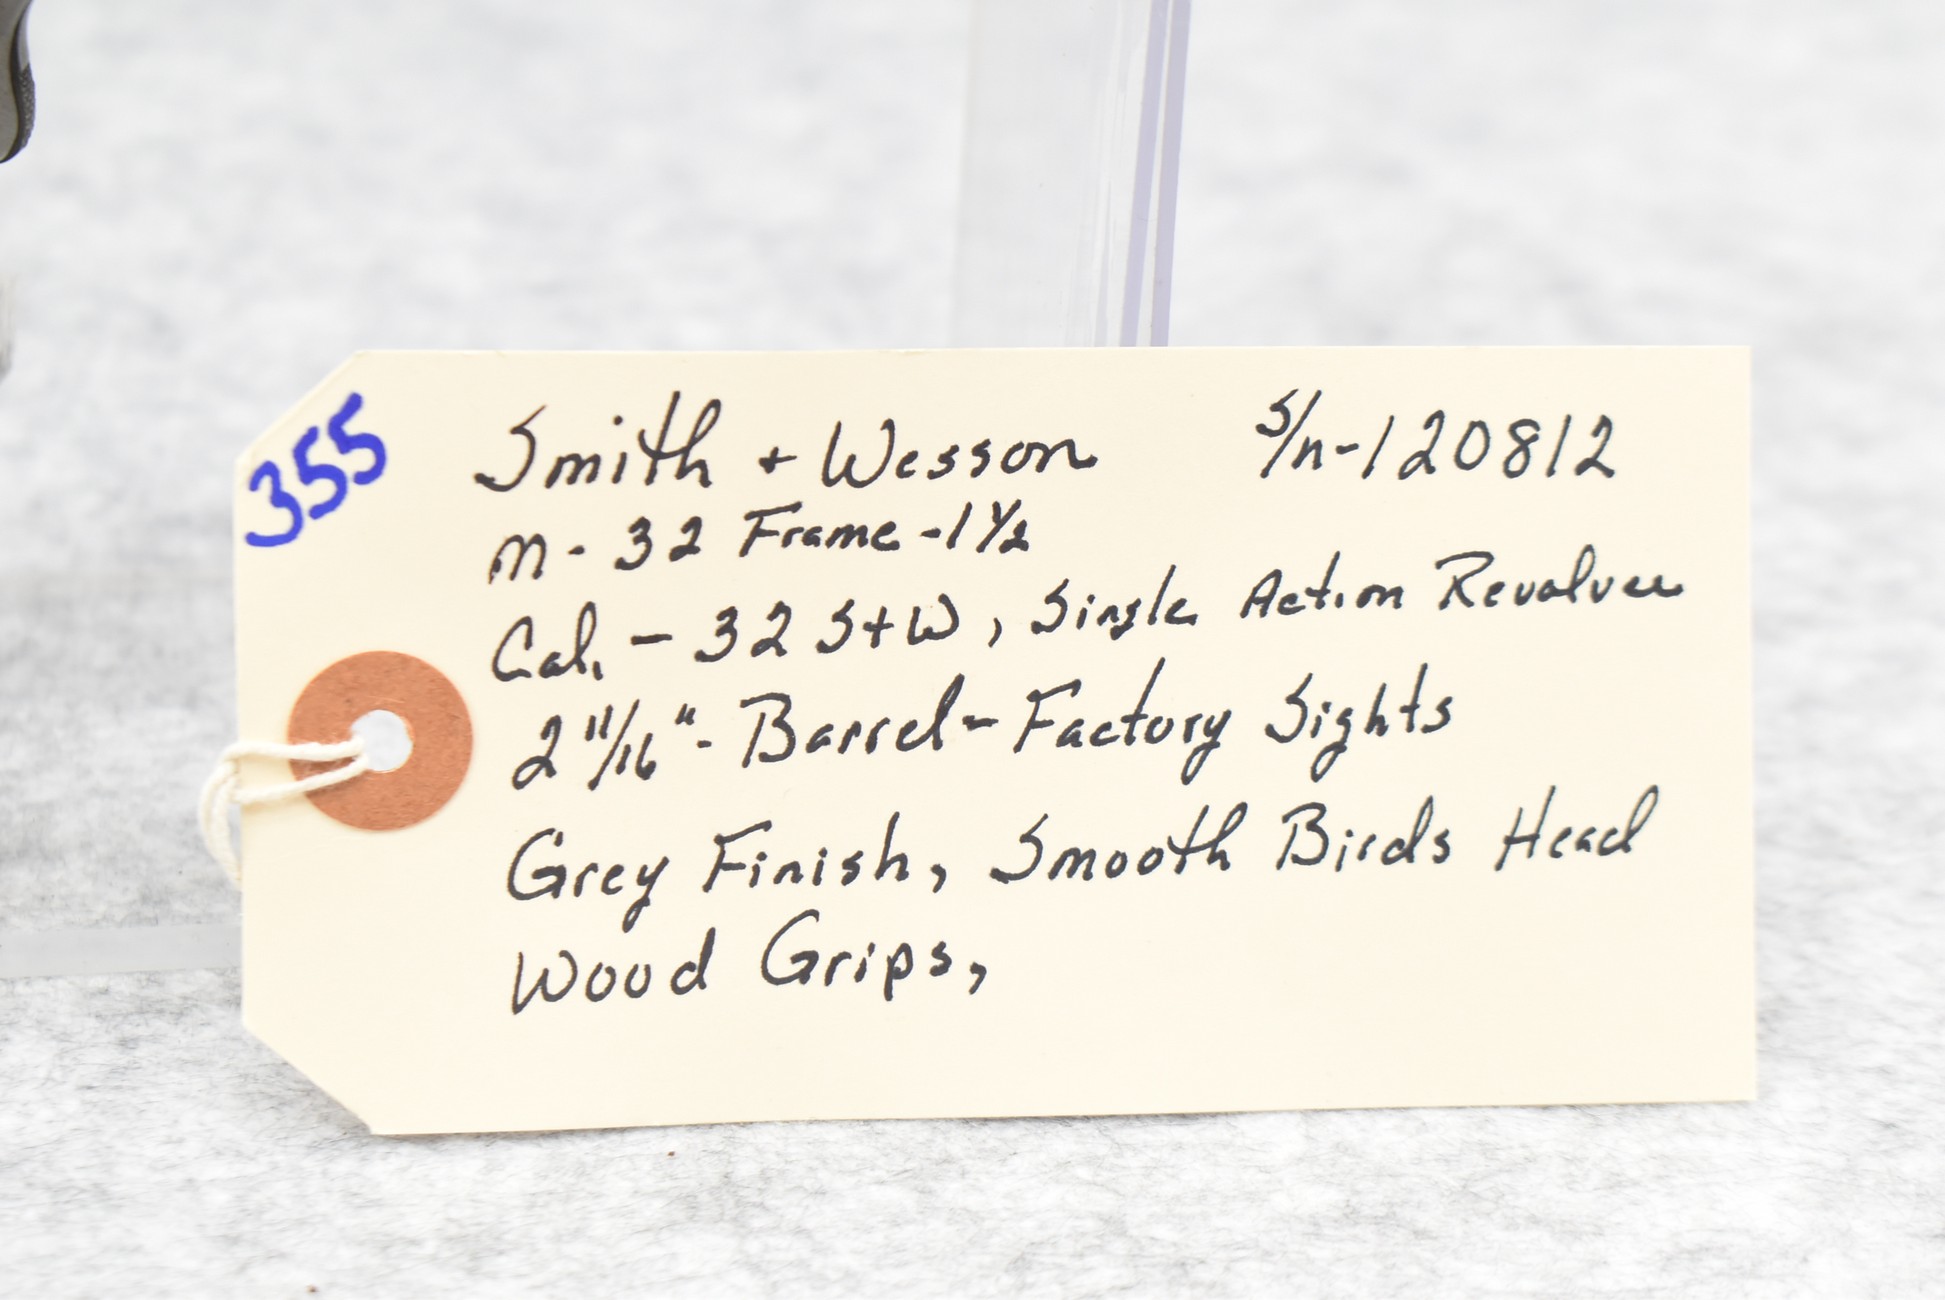 355
Smith + Wesson S/n-120812
M-32 Frame-1 1/2
Cal. - 32 S+W, Single Action Revolver
2 11/16"- Barrel- Factory Sights
Grey Finish, Smooth Birds Head
Wood Grips,